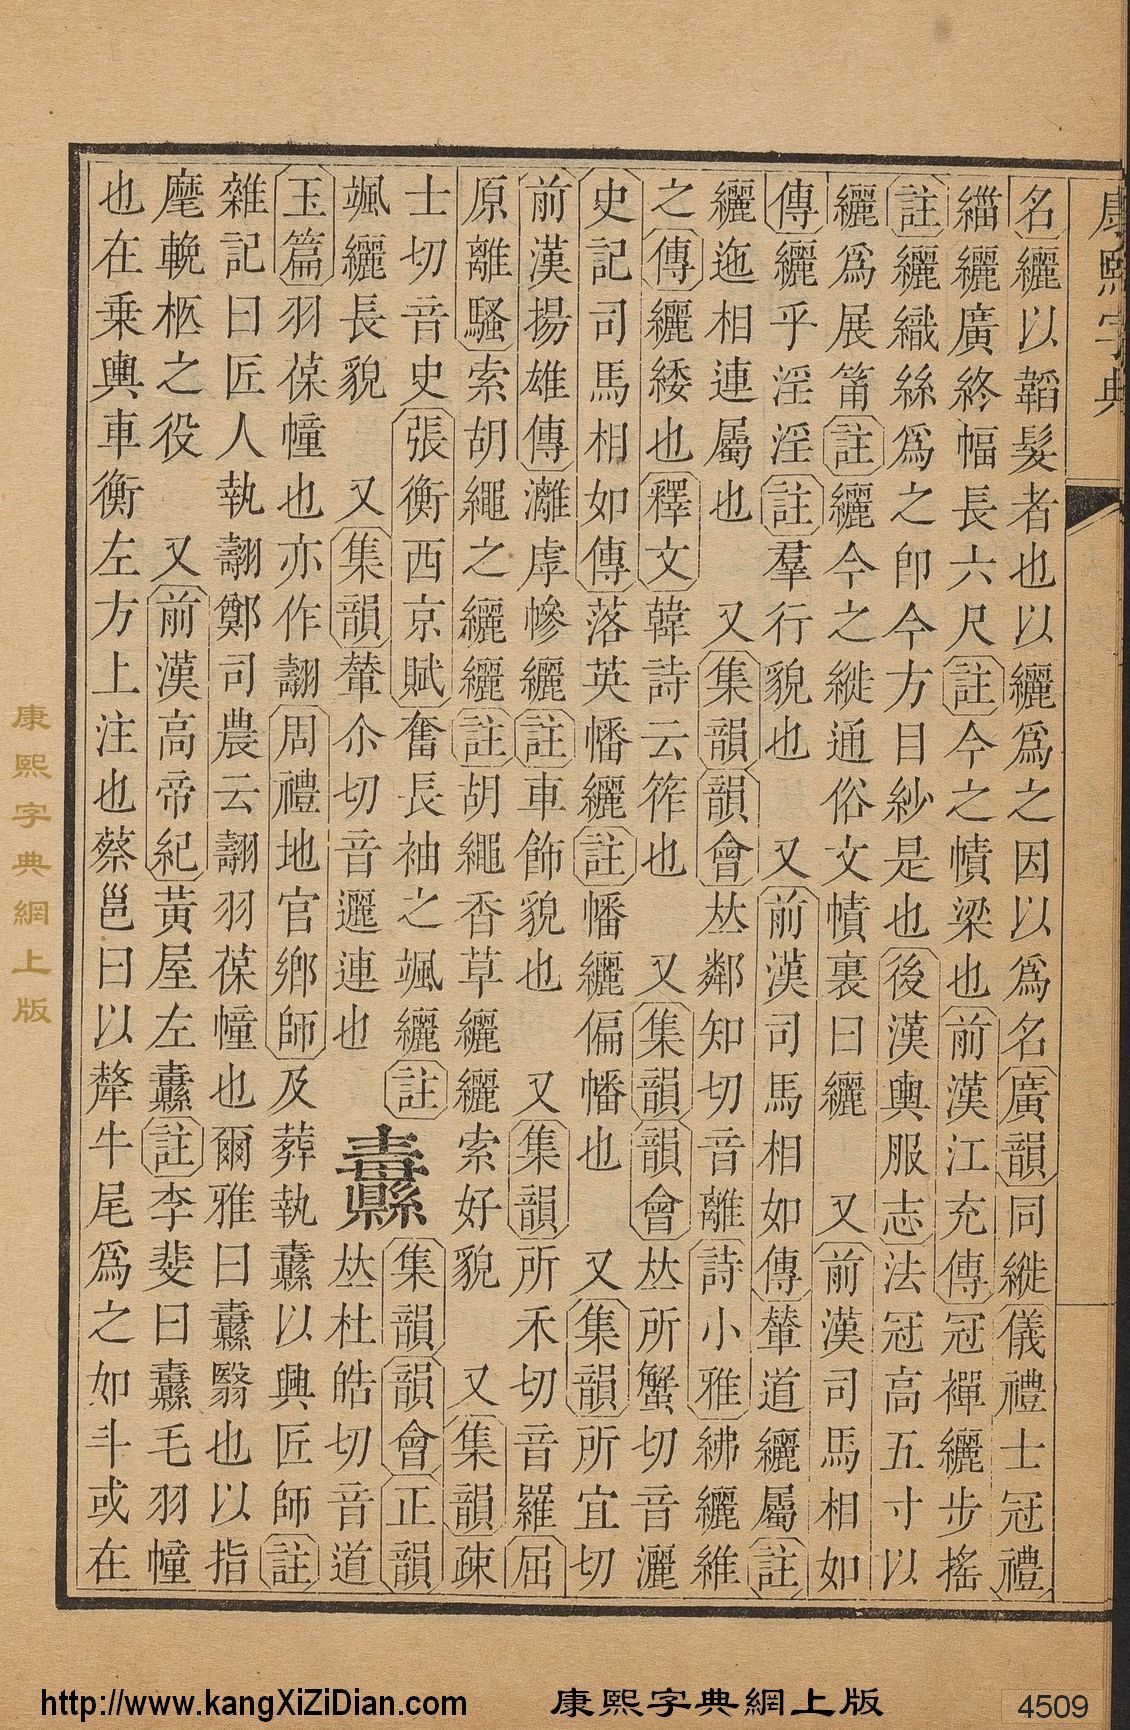 康熙字典
名纚以韜髮者也以纚爲之因以爲名廣韻同縰儀禮士冠禮
緇纚廣終幅長六尺註今之幘梁也前漢江充傳冠襌纚步搖
註纚織絲爲之卽今方目紗是也後漢輿服志法冠高五寸以
纚爲展筩註纚今之縰通俗文幘裏曰纚 又前漢司馬相如
傳纚乎淫淫註羣行貌也 又前漢司馬相如傳輦道纚屬註
纚迤相連屬也 又集韻韻會𠀤鄰知切音離詩小雅紼纚維
之傳纚緌也釋文韓詩云筰也 又集韻韻會𠀤所蟹切音灑
史記司馬相如傳落英幡纚註幡纚偏幡也 又集韻所宜切
前漢揚雄傳灕虖幓纚註車飾貌也 又集韻所禾切音羅屈
原離騷索胡繩之纚纚註胡繩香草纚纚索好貌 又集韻疎
士切音史張衡西京賦奮長袖之颯纚註
颯纚長貌 又集韻輦尒切音邐連也
纛
集韻韻會正韻
𠀤杜皓切音道
玉篇羽葆幢也亦作翿周禮地官鄉師及葬執纛以與匠師註
雜記曰匠人執翿鄭司農云翿羽葆幢也爾雅曰纛翳也以指
麾輓柩之役 又前漢高帝紀黃屋左纛註李斐曰纛毛羽幢
也在乗輿車衡左方上注也蔡邕曰以犛牛尾爲之如斗或在
康熙字典網上版
http://www.kangXiZiDian.com 康熙字典網上版 4509